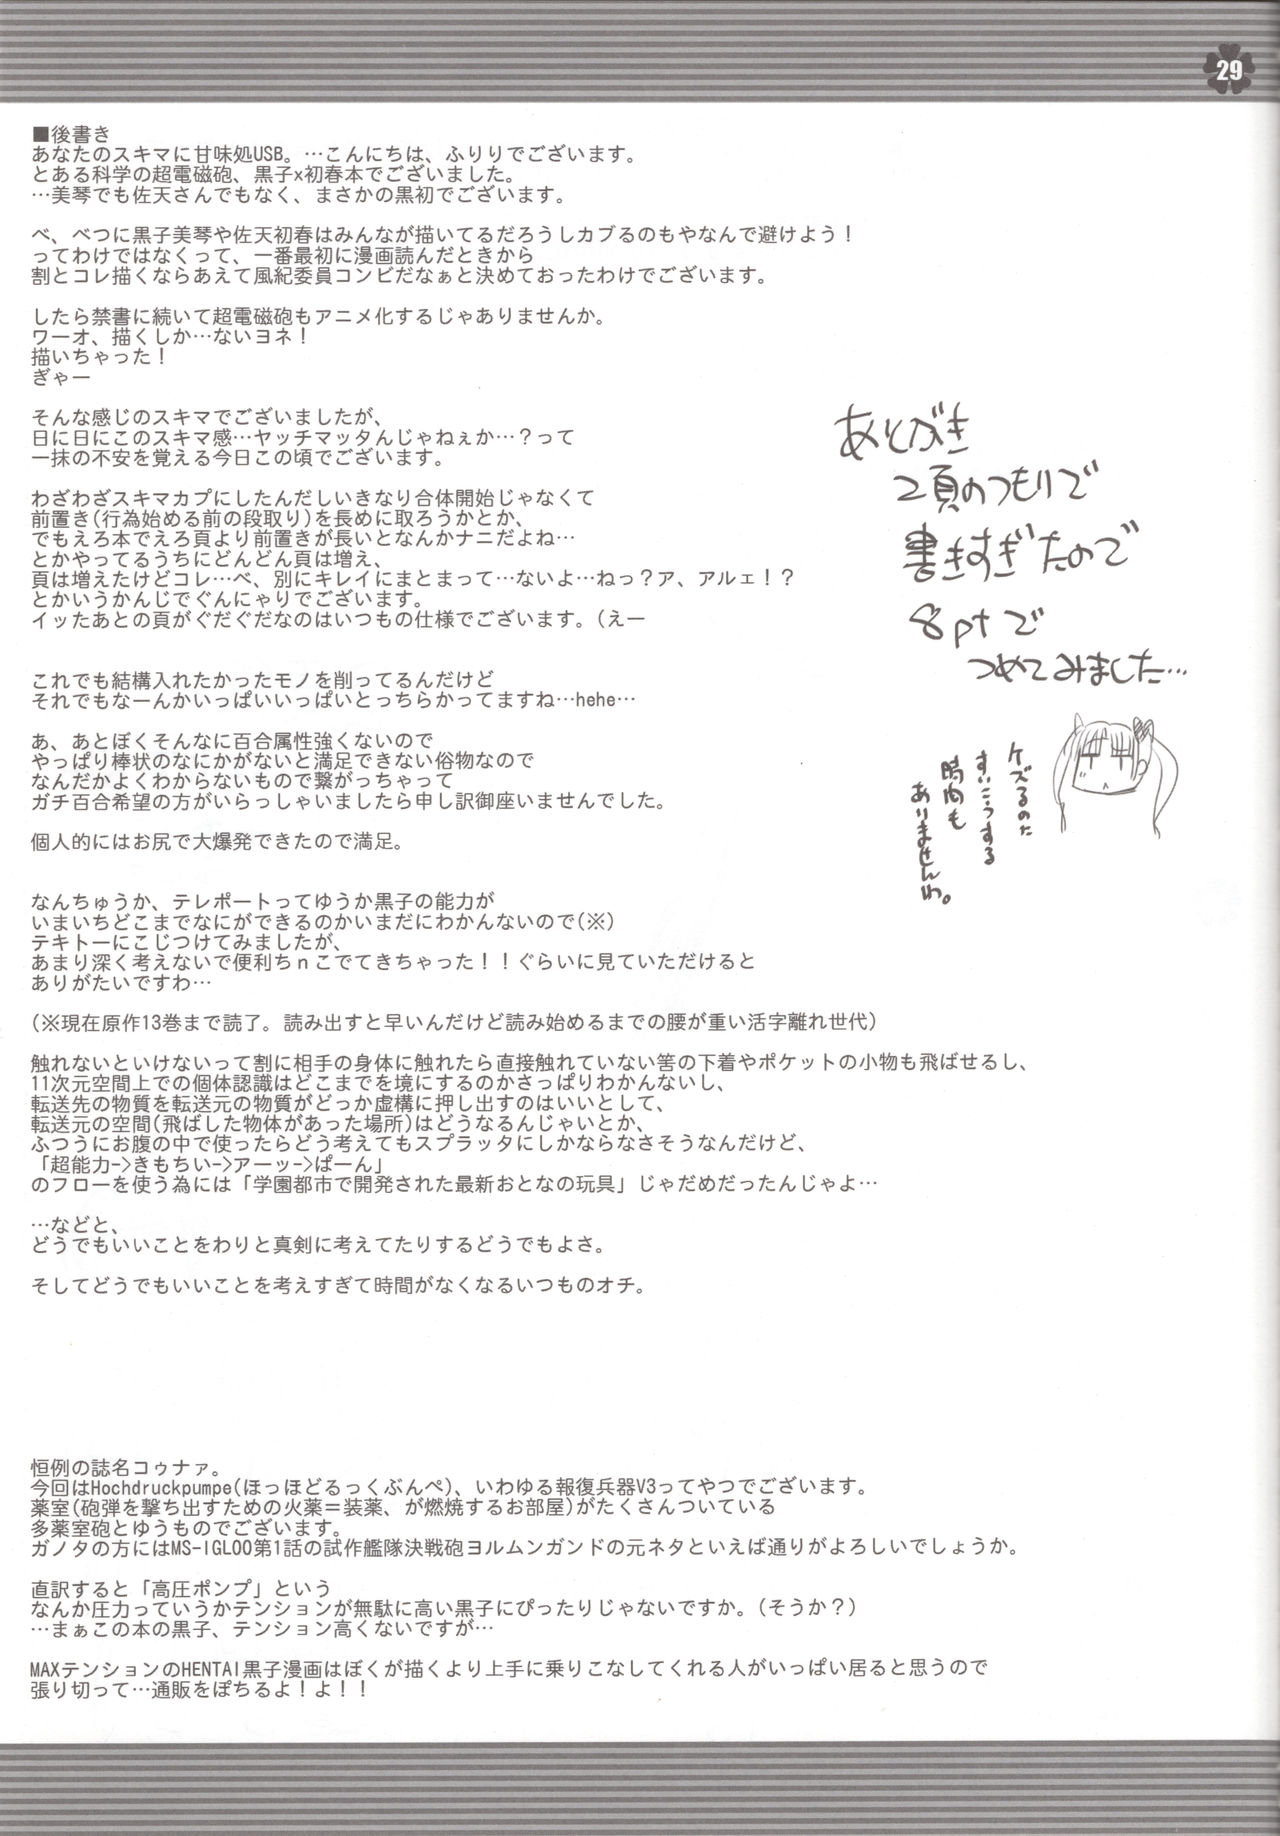 29
■後書き
あなたのスキマに甘味処USB。…こんにちは、ふりりでございます。
とある科学の超電磁砲、黒子x初春本でございました。
…美琴でも佐天さんでもなく、まさかの黒初でございます。
べ、べつに黒子美琴や佐天初春はみんなが描いてるだろうしカブるのもやなんで避けよう！
ってわけではなくって、一番最初に漫画読んだときから
割とコレ描くならあえて風紀委員コンビだなぁと決めておったわけでございます。
したら禁書に続いて超電磁砲もアニメ化するじゃありませんか。
ワーオ、描くしか…ないヨネ！
描いちゃった！
ぎゃー
そんな感じのスキマでございましたが、
日に日にこのスキマ感…ヤッチマッタんじゃねぇか…？って
一抹の不安を覚える今日この頃でございます。
わざわざスキマカプにしたんだしいきなり合体開始じゃなくて
前置き(行為始める前の段取り)を長めに取ろうかとか、
でもえろ本でえろ頁より前置きが長いとなんかナニだよね…
とかやってるうちにどんどん頁は増え、
頁は増えたけどコレ…べ、別にキレイにまとまって…ないよ…ねっ？ア、アルェ！？
とかいうかんじでぐんにゃりでございます。
イッたあとの頁がぐだぐだなのはいつもの仕様でございます。(えー
これでも結構入れたかったモノを削ってるんだけど
それでもなーんかいっぱいいっぱいとっちらかってますね…hehe…
あ、あとぼくそんなに百合属性強くないので
やっぱり棒状のなにかがないと満足できない俗物なので
なんだかよくわからないもので繋がっちゃって
ガチ百合希望の方がいらっしゃいましたら申し訳御座いませんでした。
個人的にはお尻で大爆発できたので満足。
なんちゅうか、テレポートってゆうか黒子の能力が
いまいちどこまでなにができるのかいまだにわかんないので(※)
テキトーにこじつけてみましたが、
あまり深く考えないで便利ちｎこでてきちゃった！！ぐらいに見ていただけると
ありがたいですわ…
(※現在原作13巻まで読了。読み出すと早いんだけど読み始めるまでの腰が重い活字離れ世代)
触れないといけないって割に相手の身体に触れたら直接触れていない筈の下着やポケットの小物も飛ばせるし、
11次元空間上での個体認識はどこまでを境にするのかさっぱりわかんないし、
転送先の物質を転送元の物質がどっか虚構に押し出すのはいいとして、
転送元の空間(飛ばした物体があった場所)はどうなるんじゃいとか、
ふつうにお腹の中で使ったらどう考えてもスプラッタにしかならなさそうなんだけど、
「超能力->きもちい->アーッ->ぱーん」
のフローを使う為には「学園都市で開発された最新おとなの玩具」じゃだめだったんじゃよ…
…などと、
どうでもいいことをわりと真剣に考えてたりするどうでもよさ。
そしてどうでもいいことを考えすぎて時間がなくなるいつものオチ。
恒例の誌名コゥナァ。
今回はHochdruckpumpe(ほっほどるっくぶんぺ)、いわゆる報復兵器V3ってやつでございます。
薬室(砲弾を撃ち出すための火薬＝装薬、が燃焼するお部屋)がたくさんついている
多薬室砲とゆうものでございます。
ガノタの方にはMS-IGLOO第1話の試作艦隊決戦砲ヨルムンガンドの元ネタといえば通りがよろしいでしょうか。
直訳すると「高圧ポンプ」という
なんか圧力っていうかテンションが無駄に高い黒子にぴったりじゃないですか。(そうか？)
…まぁこの本の黒子、テンション高くないですが…
MAXテンションのHENTAI黒子漫画はぼくが描くより上手に乗りこなしてくれる人がいっぱい居ると思うので
張り切って…通販をぽちるよ！よ！！
あとがき
2頁のつもりで
書きすぎたので
8ptで
つめてみました…
ケズるのた
すいこうする
時間も
ありませんわ。